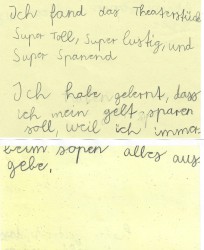 Ich fand das Theaterstück
Super Toll, Super lustig, und
Super Spanend
Ich habe gelernt, dass
ich mein gelt sparen
soll, weil ich immer
beim sopen alles aus-
gebe.